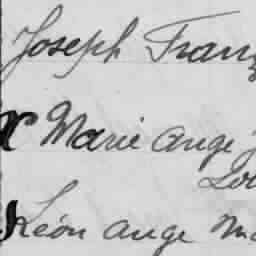 Joseph Franz
X Marie Ange J
Lou
Léon Ange Ma